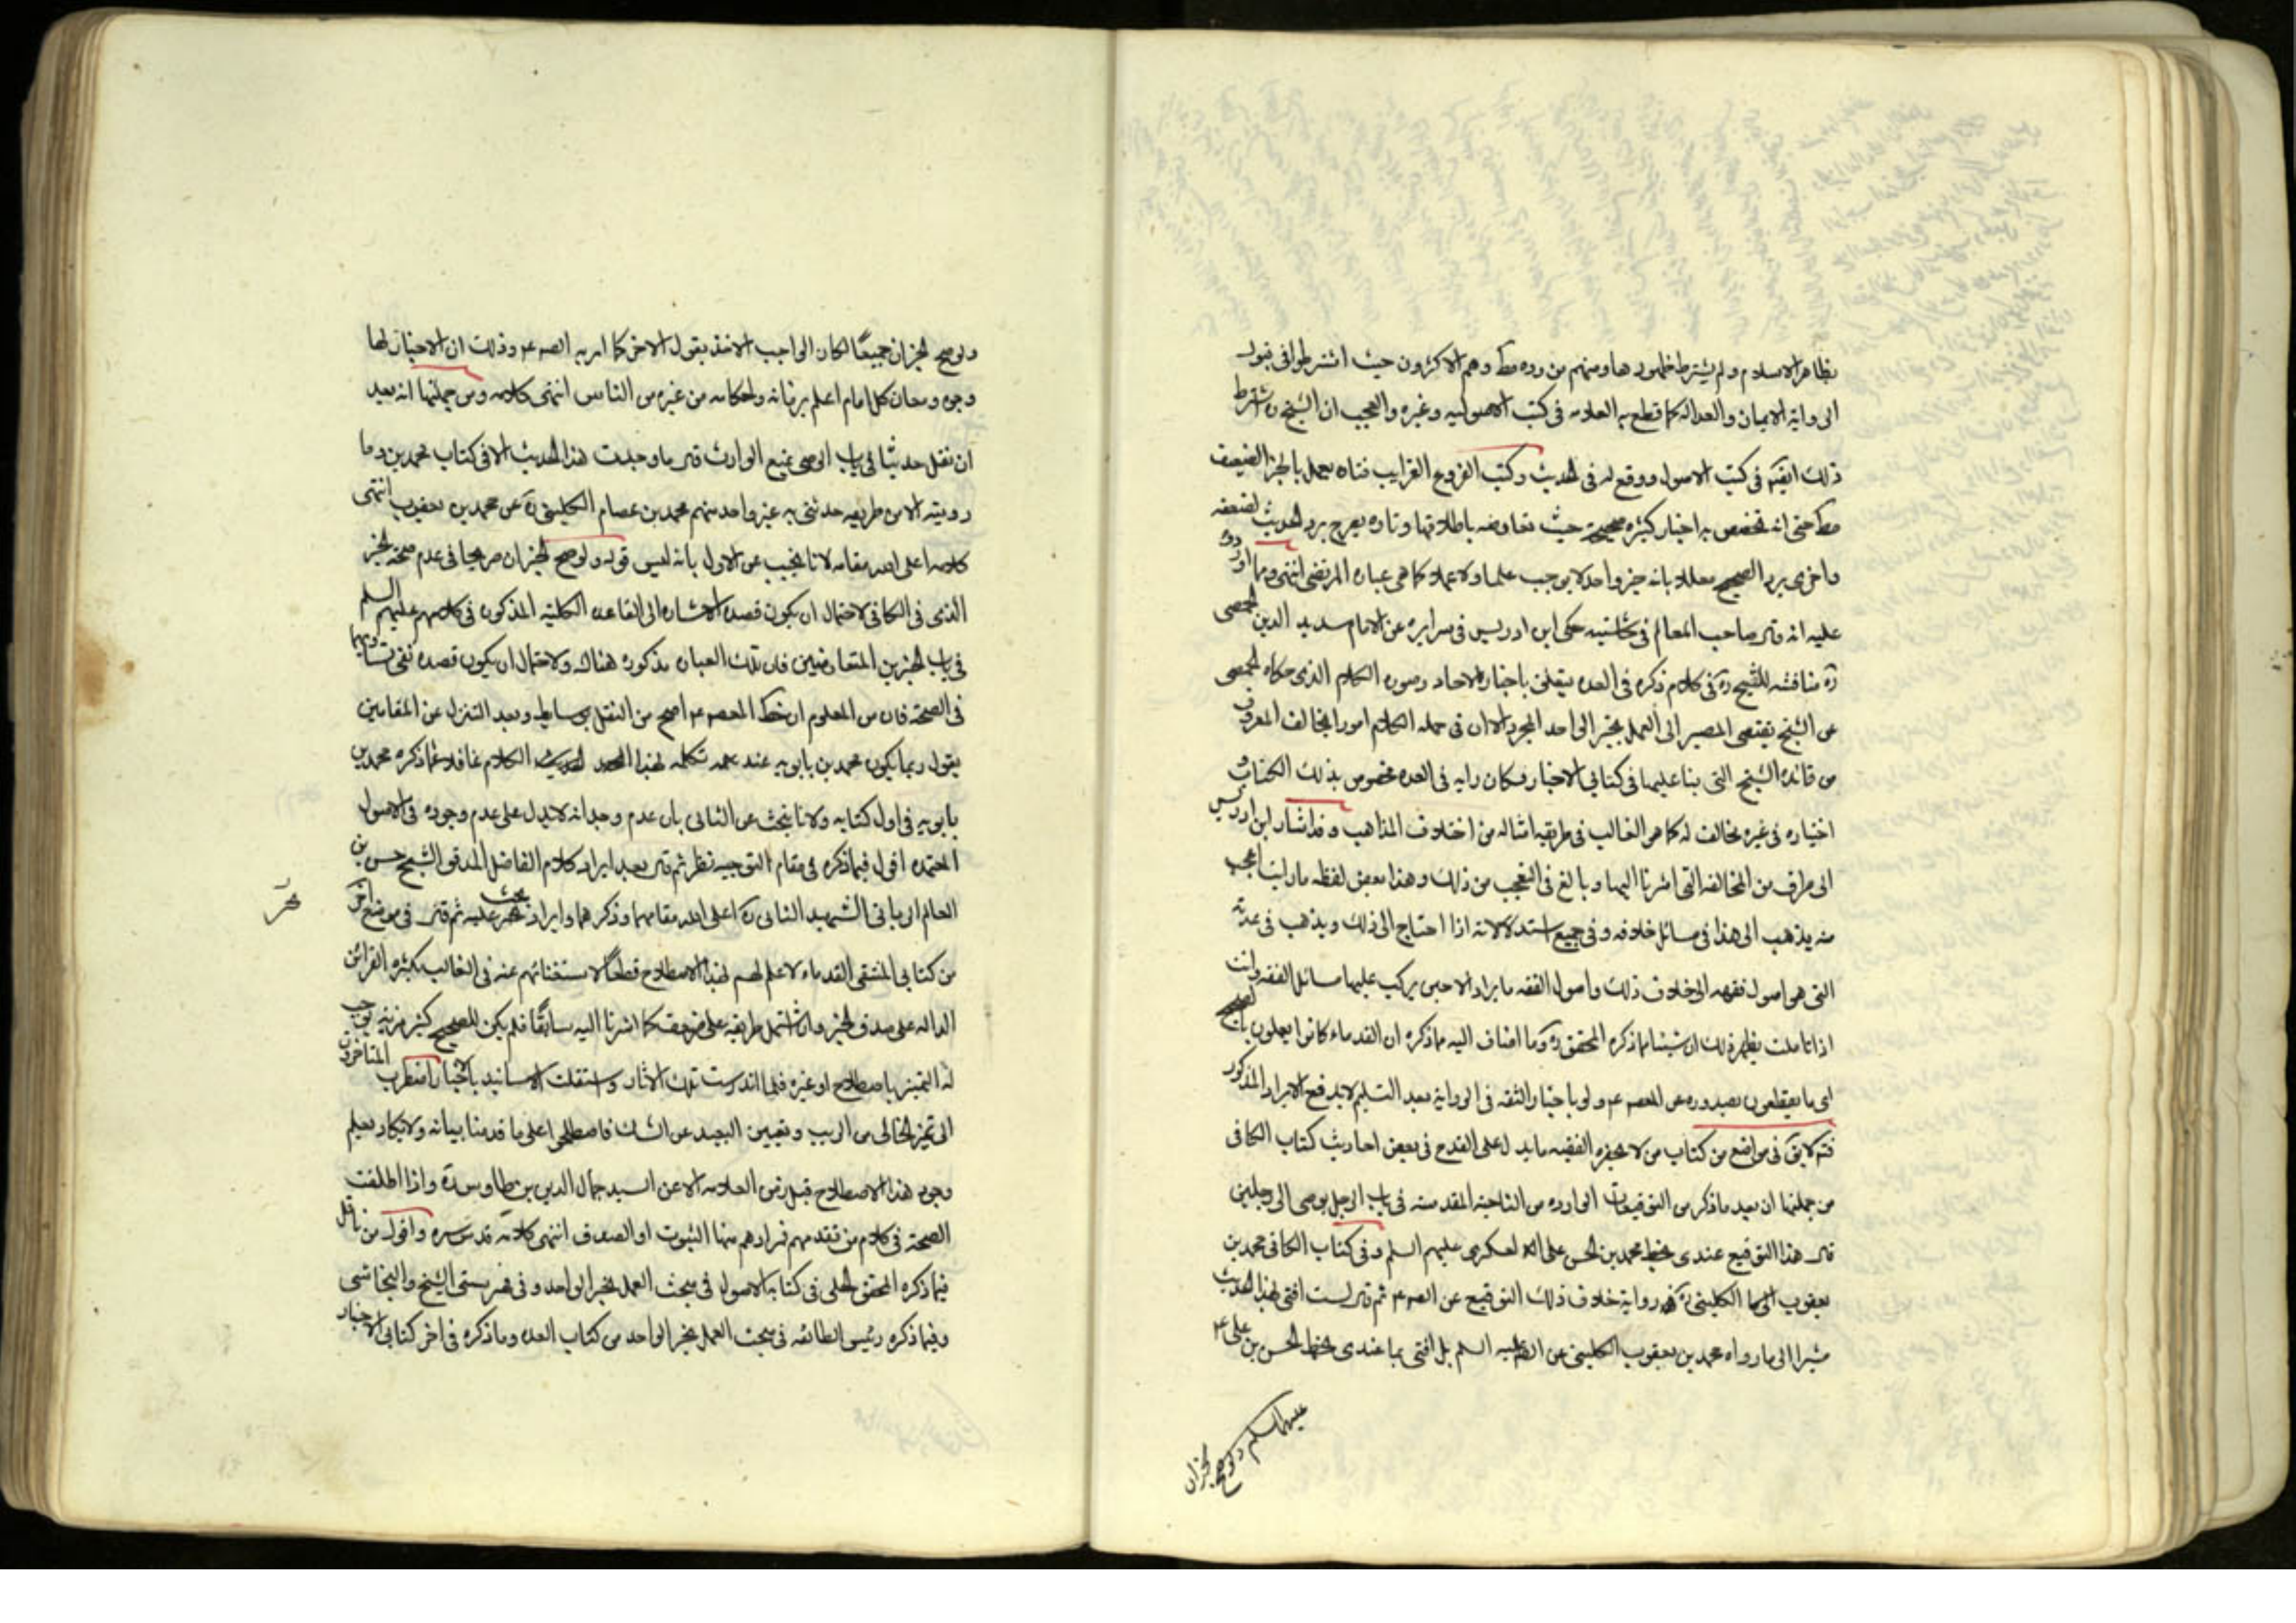 بظاهر الاسلام ولم يشترط ظهورها ومنهم من رده مط وهم الاكثرون حيث اشترطوا في قبول
الرواية الايمان والعدالة كما قطع به العلامه في كتب الاصوليه وغيره والعجب ان الشيخ ره اشترط
ذلك ايضً في كتب الاصول ووقع له في الحديث وكتب الفروع الغرايب فتاه يعمل بالخبر الضعيف
مط حتى انه يخصص به اخبار كثيره صحيحة حيث تعارضه باطلاقها وتاره يصرح برد الحديث لضعفه
واخرى برد الصحيح معللا بانه خبر واحد لا يوجب علما ولا عملا كما هي عباره المرتضى انتهى ومما اورد
عليه انه قال صاحب المعالم في حاشيته حكى ابن ادريس في سرايره عن الامام سديد الدين الحمصى
ره مناقشه للشيخ ره في كلام ذكره في العده يتعلق باخبار الاحاد وصوره الكلام الذى حكاه الحمصى
عن الشيخ يقتضى المصير الى العمل بخبر الواحد المجرد الا ان في جمله الكلام امورا يخالف المعروف
من قاعده الشيخ التى بنا عليها في كتابي الاخبار فكان رايه في العده مخصوص بذلك الكتاب و
اختياره في غيره مخالف له كما هو الغالب في طريقه امثاله من اختلاف المذاهب وقد اشار ابن ادريس
الى طرف من المخالفه التى اشرنا اليها وبالغ في التعجب من ذلك وهذا بعض لفظه ما رايت اعجب
منه يذهب الى هذا في مسائل خلافه وفي جميع استدلالاته اذا احتاج الى ذلك ويذهب في عدته
التى هى اصول فقهه الى خلاف ذلك واصول الفقه ما يراد الا حتى يركب عليها مسائل الفقه وانت
اذا تاملت يظهر ذلك ان شيئا مما ذكره المحقق ره وما اضاف اليه مما ذكره ان القدماء كانوا يعملون بالصحيح
اى ما يقطعون بصدوره عن المعصوم ع ولو باخبار الثقه في الرواية بعد التسليم لا يدفع الايراد المذكور
فتم لا يق في مواضع من كتاب من لا يحضره الفقيه ما يدل على القدح في بعض احاديث كتاب الكافى
من جملتها ان بعد ما ذكر من التوقيعات الوارده من الناحية المقدسه في باب الرجل يوصى الى رجلين
قال هذا التوقيع عندى بخط محمد بن الحسن على العسكرى عليهم السلم وفي كتاب الكافى محمد بن
يعقوب الكلينى ره رواية خلاف ذلك التوقيع عن الصم ثم قال لست افتى بهذا الحديث
مشيرا الى ما رواه محمد بن يعقوب الكلينى عن الص عليه السلم بل افتى بما عندى بخط الحسن بن على ع
عليهما السلم ولو صح الخبران
ولو صح الخبران جميعًا لكان الواجب الاخذ بقول الاخر كما امر به الصم ع وذلك ان الاخبار لها
وجوه ومعان كل امام اعلم بزمانه واحكامه من غيره من الناس انتهى كلامه ومن جملتها انه بعد
ان نقل حديثا في باب الوصى يمنع الوارث قال ما وجدت هذا الحديث الا في كتاب محمد بن وما
رويته الا من طريقه حدثنى به غير واحد منهم محمد بن عصام الكلينى ره عن محمد بن يعقوب انتهى
كلامه اعلى الله مقامه لانا نجيب عن الاول بانه ليس قوله ولو صح الخبران صريحا في عدم صحة الخبر
الذى في الكافى لاحتمال ان يكون قصده الاشاره الى القاعده الكلية المذكوره في كلامهم عليهم السلم
في باب الخبرين المتعارضين فان تلك العباره مذكوره هناك ولاحتمال ان يكون قصده نفى تساويهما
في الصحة فان من المعلوم ان خط المعصوم ع اصح من النقل بوسايط وبعد التنزل عن المقامين
يقول ربما يكون محمد بن بابويه عند تكلمه بهذا الكلام غافلا عما ذكره محمد بن
بابويه في اول كتابه ولانا نجيب عن الثانى بان عدم وجدانه لا يدل على عدم وجوده في الاصول
المعتمده اقول فيما ذكره في مقام التوجيه نظر ثم قال بعد ايراد كلام الفاضل المدقق الشيخ حسن بن
العالم الربانى الشهيد الثانى ره اعلى الله مقامهما وذكرهما وايراد بحث عليه ثم قال في موضع اخر
من كتابى المنتقى القدماء لا علم لهم بهذا الاصطلاح قطعًا لاستغنائهم عنه في الغالب بكثره القرائن
الداله على صدق الخبر وان اشتمل طريقه على ضعف كما اشرنا اليه سابقًا فلم يكن للصحيح كثير مزيه توجب
له التميز باصطلاح او غيره فلما اندرست تلك الاثار واستقلت الاسانيد بالاخبار اضطرب المتاخرون
الى تميز الخالى من الريب وتعيين البعيد عن الشك فاصطلحوا على ما قدمنا بيانه ولا يكاد يعلم
وجود هذا الاصطلاح قبل زمن العلامه الا عن السيد جمال الدين بن طاوس ره واذا اطلقت
الصحة في كلام من تقدمهم فمرادهم منها الثبوت او الصدق انتهى كلامه قدس سره واقول من تامل
فيما ذكره المحقق الحلى في كتابه الاصول في مبحث العمل بخبر الواحد وفي فهرستى الشيخ والنجاشى
وفيما ذكره رئيس الطائفه في مبحث العمل بخبر الواحد من كتاب العده وما ذكره في اخر كتابى الاخبار